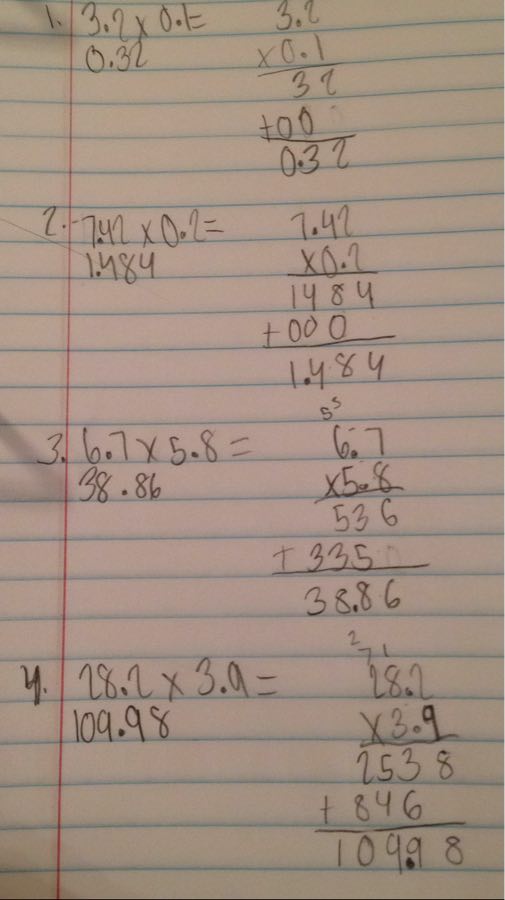 1. 3.2 x 0.1=
0.32
3.2
x0.1
32
+00
0.32
2. 7.42 x 0.2=
1.484
7.42
x0.2
1484
+000
1.484
3. 6.7 x 5.8 =
38.86
5 5
6.7
x5.8
536
+3350
38.86
4. 28.2 x 3.9=
109.98
2 7 1
28.2
x3.9
2538
+846
109.98